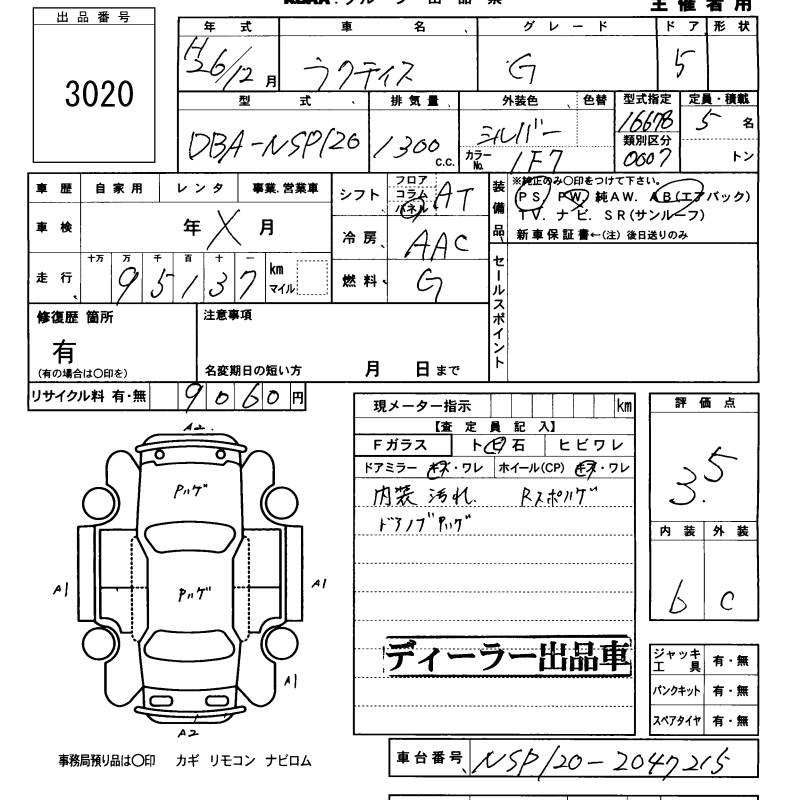 主催者用
出品番号
3020
年式 車名 グレード ドア 形状
H26/12月 ラクティス G 5
型式 排気量 外装色 色替 型式指定 定員・積載
DBA-NSP120 1300 c.c. シルバー 16678 5名
カラーNo. 1F7 類別区分 0007 トン
車歴 自家用 レンタ 事業.営業車
車検 年 X 月
走行 十万 万 千 百 十 一
95137 km マイル
シフト フロア コラム パネル AT
冷房 AAC
燃料 G
装備品
※純正のみ〇印をつけて下さい。
PS. PW. 純AW. AB(エアバック)
TV. ナビ. SR(サンルーフ)
新車保証書←(注) 後日送りのみ
セールスポイント
修復歴 箇所
有
(有の場合は〇印を)
注意事項
名変期日の短い方 月 日まで
リサイクル料 有・無 9060円
現メーター指示 km
【査定員記入】
Fガラス トビ石 ヒビワレ
ドアミラー キズ・ワレ ホイール(CP) キズ・ワレ
内装 汚れ. Rスポハゲ
ドアノブPハゲ
ディーラー出品車
評価点
3.5
内装 外装
b C
ジャッキ工具 有・無
パンクキット 有・無
スペアタイヤ 有・無
A2
Pハゲ
A1
Pハゲ
A1
A1
A2
事務局預り品は〇印 カギ リモコン ナビロム
車台番号 NSP120-2047215